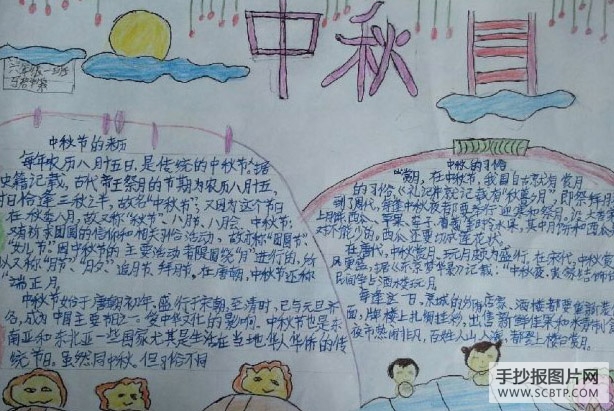 中秋月
六年级一班
中秋节的来历
每年农历八月十五日,是传统的中秋节。据
史籍记载,古代帝王祭月的节期为农历八月十五,
时日恰逢三秋之半,故名“中秋节”;又因为这个节日
在秋季八月,故又称“秋节”、八月节、八月会、中秋节;
又有祈求团圆的信仰和相关习俗活动,故亦称“团圆节”、
“女儿节”。因中秋节的主要活动都是围绕“月”进行的,所
以又称“月节”、“月夕、追月节、拜月节。在唐朝,中秋节还称
端正月。
中秋节始于唐朝初年,盛行于宋朝,至清时,已与元旦齐
名,成为中国主要节日之一。受中华文化的影响,中秋节也是东
南亚和东北亚一些国家尤其是生活在当地华人华侨的传
统节日。虽然同中秋。但习俗不同
中秋的习俗
赏月,在中秋节,我国自古就有赏月
的习俗《礼记》中就记载有“秋暮夕月”,即祭拜月
到了周代,每逢中秋夜都要举行迎寒和祭月。设大
上月饼、西瓜、苹果、枣子、葡萄等时令水果,其中月饼和西瓜
对不能少的,西瓜还要切成莲花状。
在唐代,中秋赏月、玩月颇为盛行。在宋代,中秋赏
风更盛,据《东京梦华录》记载:“中秋夜,贵家结饰
民间争占酒楼玩月
每逢这一日,京城的所有店家、酒楼都要重新
面,牌楼上扎绸挂彩,出售新鲜佳果和
夜市热闹非凡,百姓人山人海,都登上楼台赏月。
手抄报图片网
WWW.SCBTP.COM